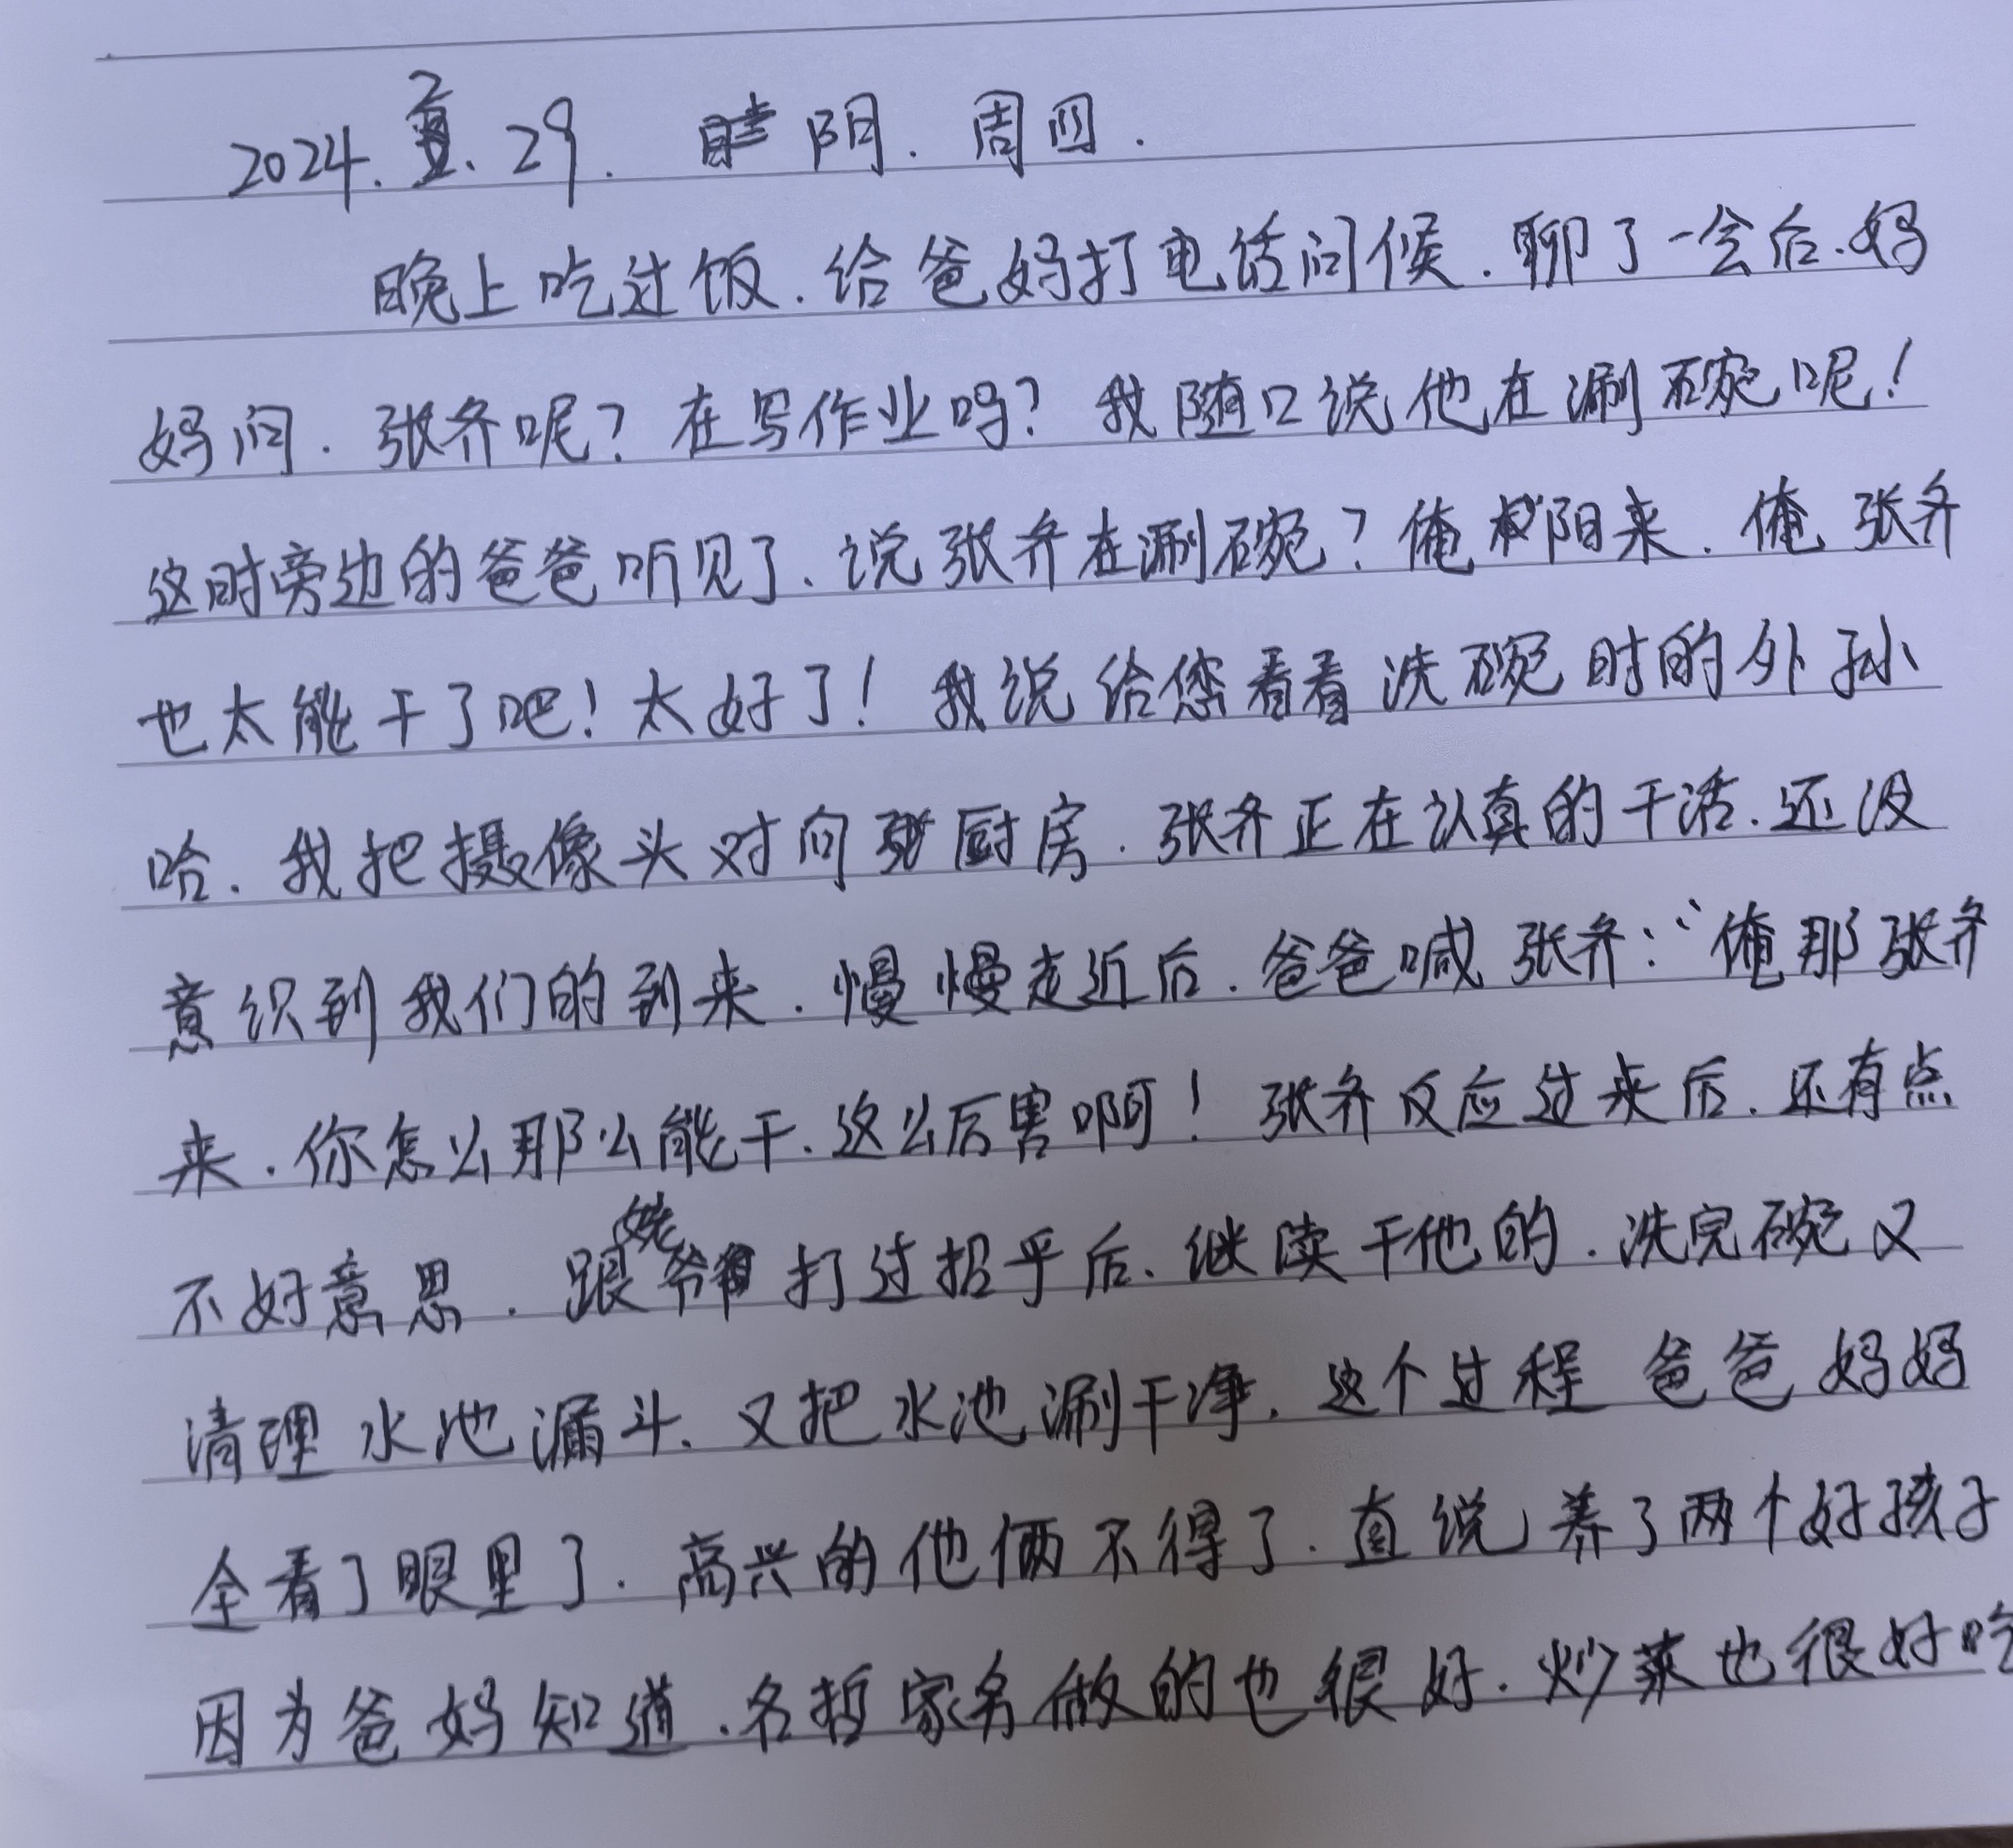 2024.2.29. 阴.周四.
晚上吃过饭.给爸妈打电话问候.聊了一会后.妈
妈问.张齐呢？在写作业吗？我随口说他在涮碗呢！
这时旁边的爸爸听见了.说张齐在涮碗？俺阳来.俺张齐
也太能干了吧！太好了！我说给您看看洗碗时的外孙
哈.我把摄像头对向厨房.张齐正在认真的干活.还没
意识到我们的到来.慢慢走近后.爸爸喊张齐：“俺那张齐
来.你怎么那么能干.这么厉害啊！张齐反应过来后.还有点
不好意思.跟姥爷打过招乎后.继续干他的.洗完碗又
清理水池漏斗.又把水池涮干净.这个过程爸爸妈妈
全看了眼里了.高兴的他俩不得了.直说养了两个好孩子
因为爸妈知道.名哲家务做的也很好.炒菜也很好吃